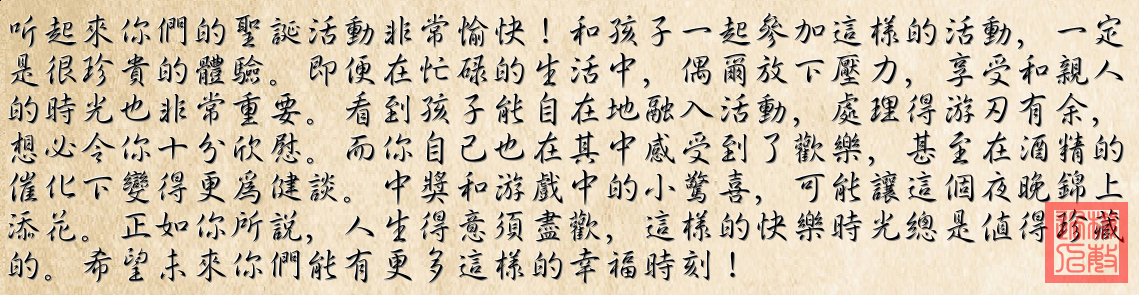 听起來你們的聖誕活動非常愉快！和孩子一起參加這樣的活動，一定
是很珍貴的體驗。即便在忙碌的生活中，偶爾放下壓力，享受和親人
的時光也非常重要。看到孩子能自在地融入活動，處理得游刃有余，
想必令你十分欣慰。而你自己也在其中感受到了歡樂，甚至在酒精的
催化下變得更爲健談。中獎和游戲中的小驚喜，可能讓這個夜晚錦上
添花。正如你所説，人生得意須盡歡，這樣的快樂時光總是值得珍藏
的。希望未來你們能有更多這樣的幸福時刻！